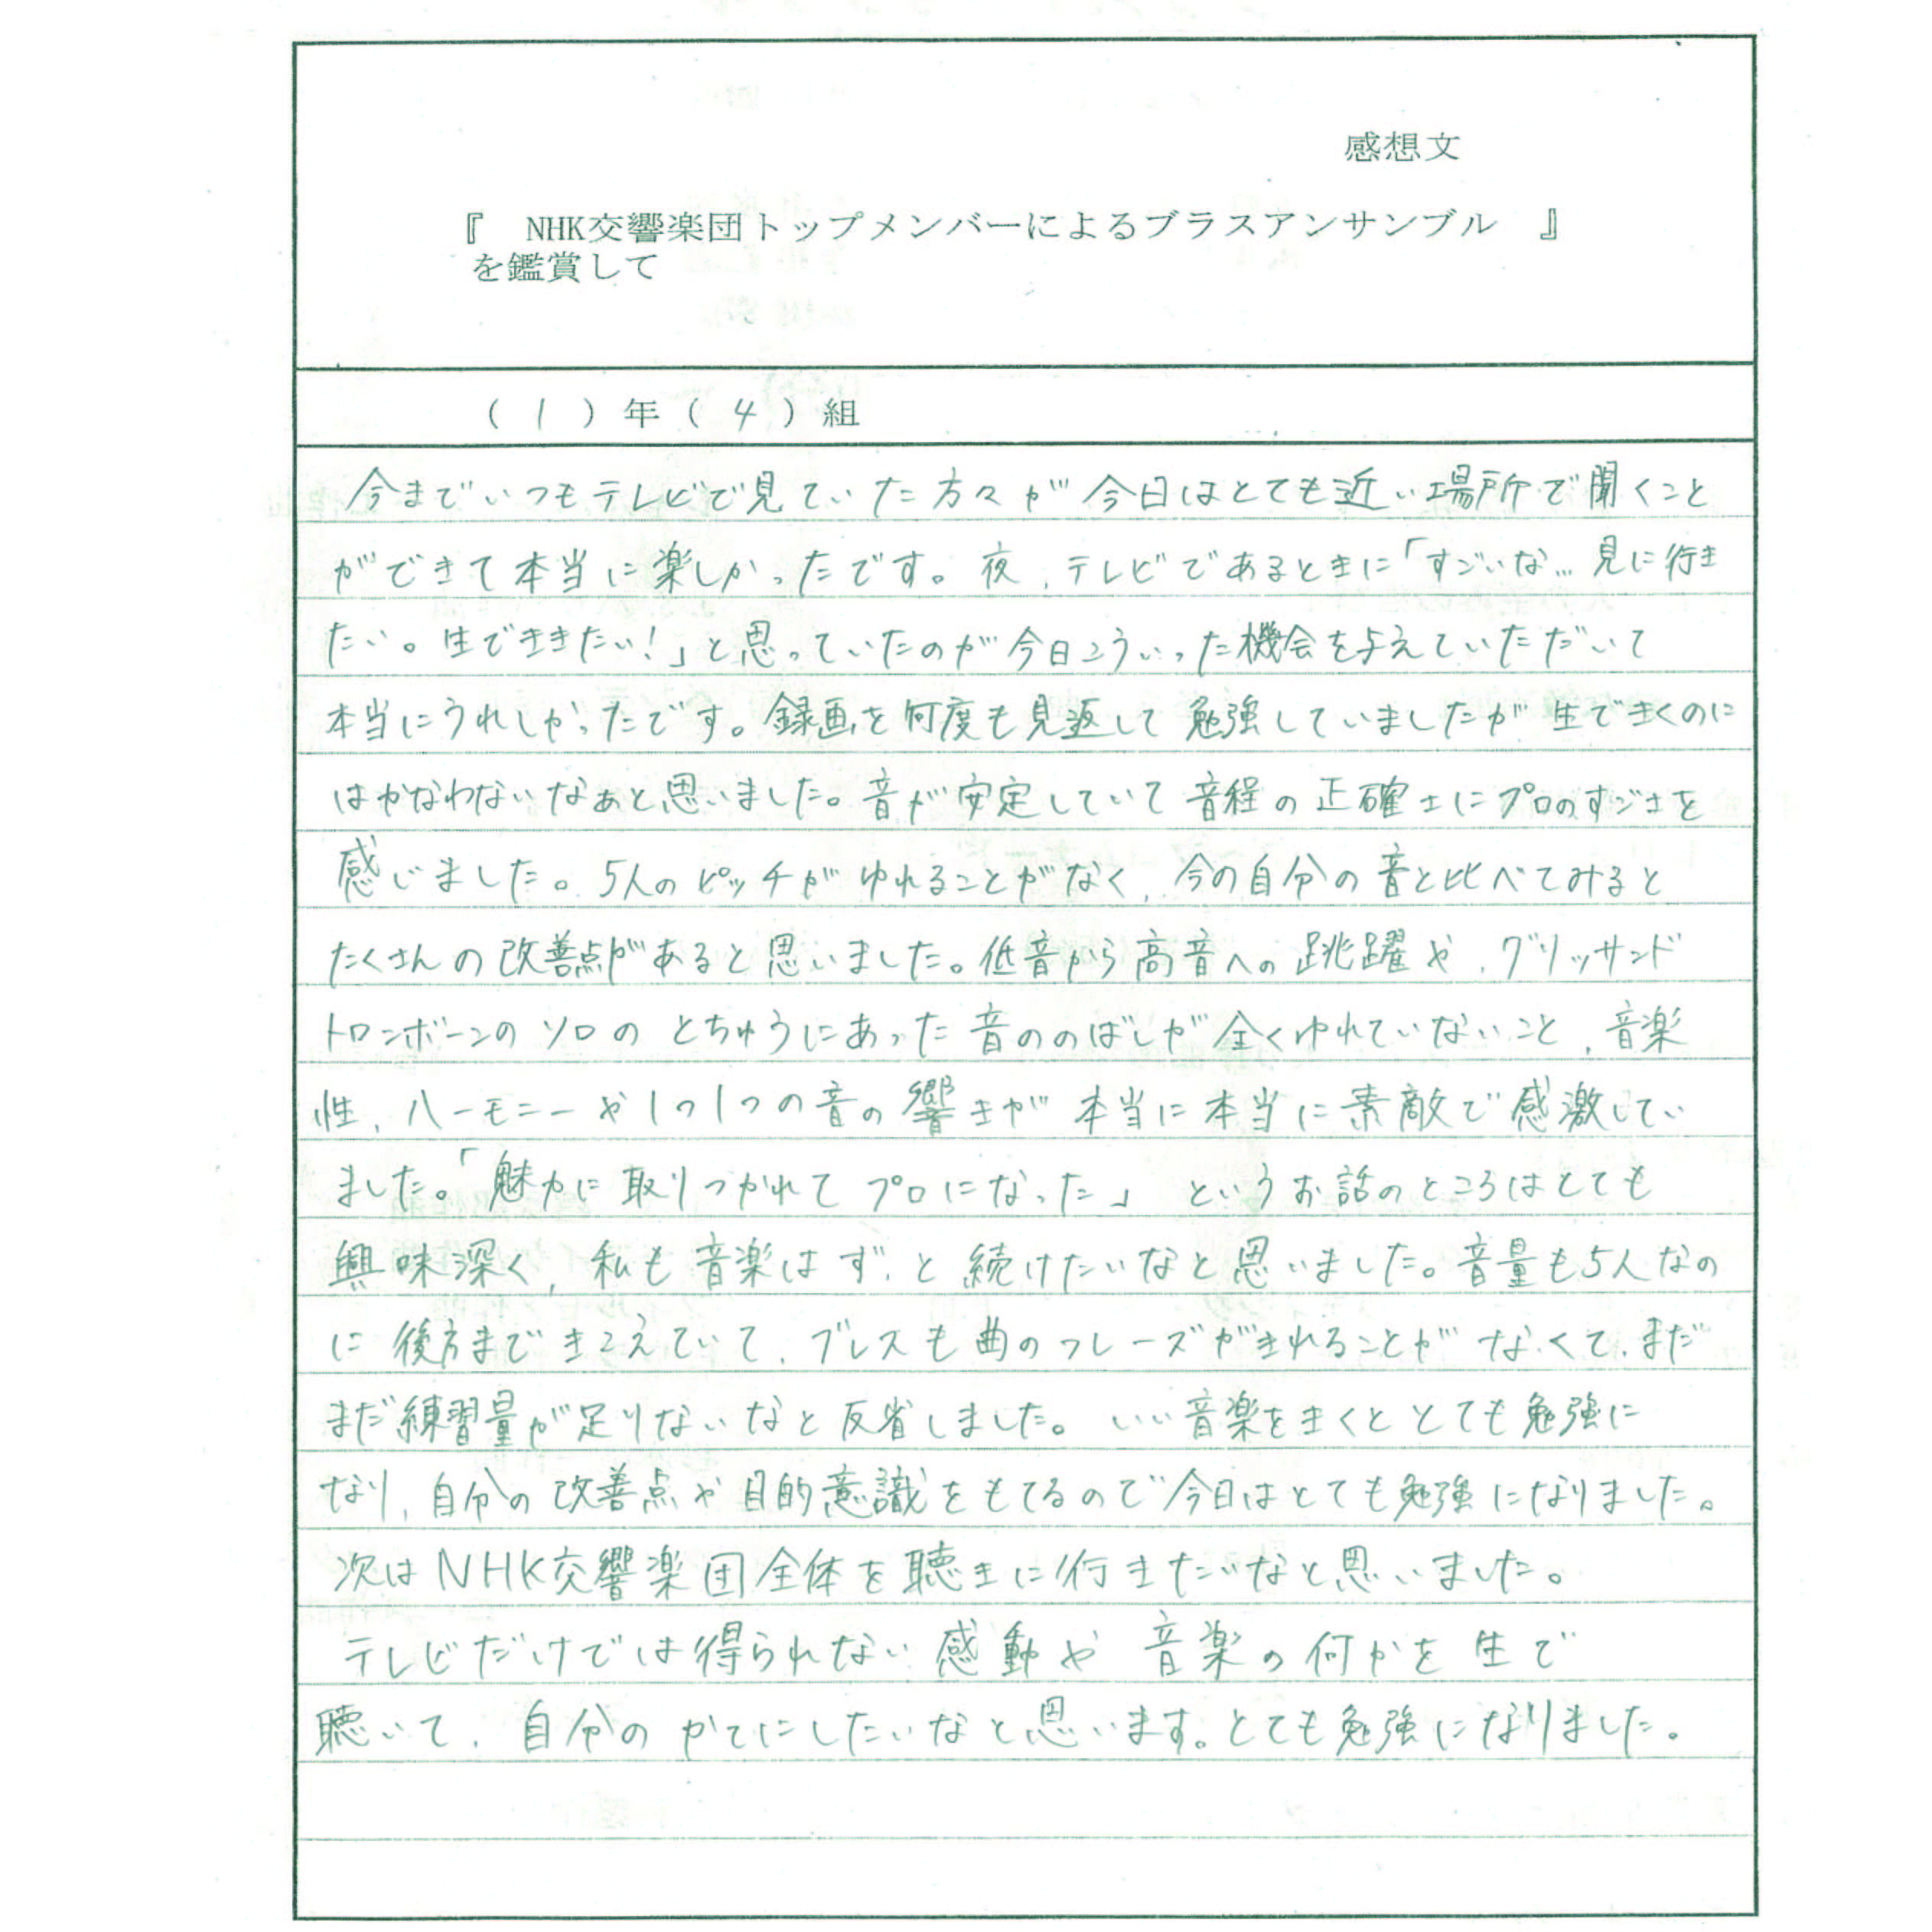 感想文
『　NHK交響楽団トップメンバーによるブラスアンサンブル　』
を鑑賞して
（ 1 ）年（ 4 ）組
今までいつもテレビで見ていた方々が今日はとても近い場所で聞くこと
ができて本当に楽しかったです。夜、テレビであるときに「すごいな…見に行き
たい。生でききたい！」と思っていたのが今日こういった機会を与えていただいて
本当にうれしかったです。録画を何度も見返して勉強していましたが生できくのに
はかなわないなぁと思いました。音が安定していて音程の正確さにプロのすごさを
感じました。5人のピッチがゆれることがなく、今の自分の音と比べてみると
たくさんの改善点があると思いました。低音から高音への跳躍や、グリッサンド
トロンボーンのソロのとちゅうにあった音ののばしが全くゆれていないこと、音楽
性、ハーモニーや1つ1つの音の響きが本当に本当に素敵で感激してい
ました。「魅力に取りつかれてプロになった」というお話のところはとても
興味深く、私も音楽はずっと続けたいなと思いました。音量も5人なの
に後方まできこえていて、ブレスも曲のフレーズがきれることがなくて、まだ
まだ練習量が足りないなと反省しました。いい音楽をきくととても勉強に
なり、自分の改善点や目的意識をもてるので今日はとても勉強になりました。
次はNHK交響楽団全体を聴きに行きたいなと思いました。
テレビだけでは得られない感動や音楽の何かを生で
聴いて、自分のかてにしたいなと思います。とても勉強になりました。